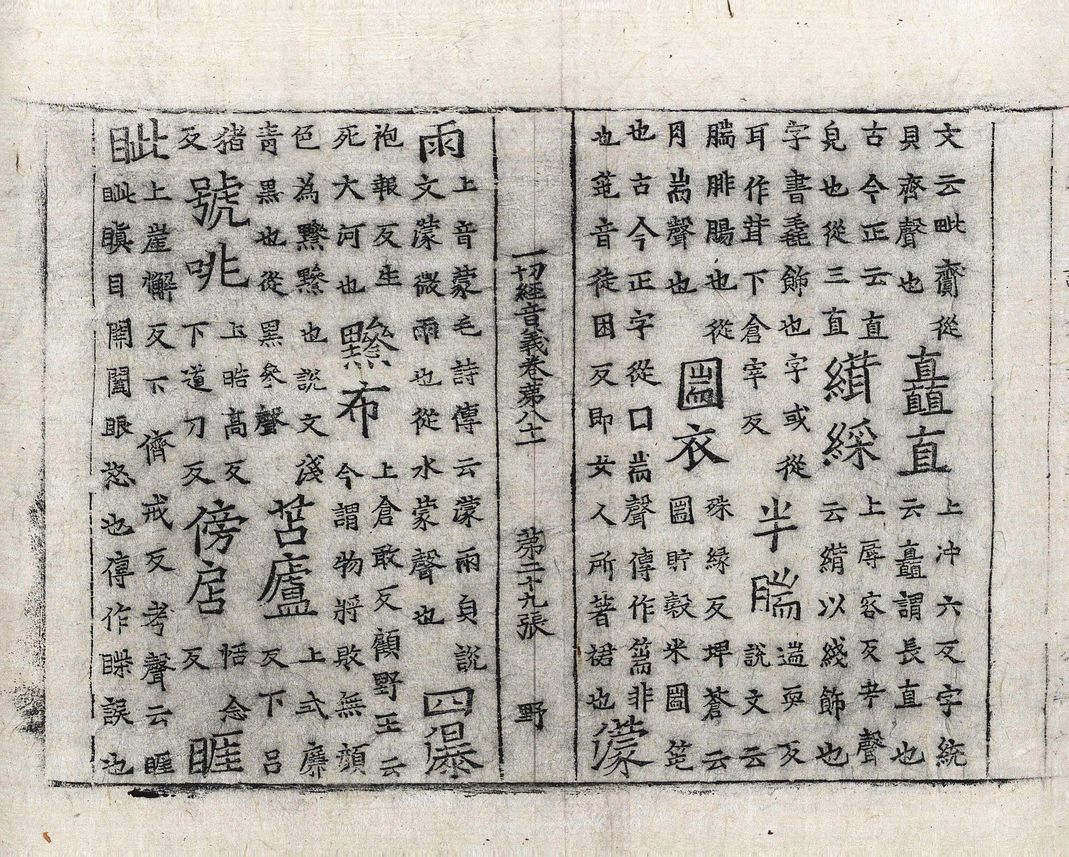 文云毗齎從貝齊聲也矗直上沖六反字統云矗謂長直也
古今正云直皃也從三直緝綵上辱容反考聲云緝以綫飾也
字書毳飾也字或從耳作茸下倉宰反半腨遄耎反說文云
腨腓腸也從月耑聲也圌衣殊緣反埤蒼云圌貯穀米圌笔
也古今正字從囗耑聲傳作篅非也笔音徒困反即女人所著裙也濛
一切經音義卷第八十一 第二十九張 野
雨上音蒙毛詩傳云濛雨皃說文濛微雨也從水蒙聲也四瀑
袍報反生死大河也黲布上倉敢反顧野王云今謂物將敗無顏
色為黲黲也說文淺青黑也從黑參聲苫廬上式廉反下呂
猪反號咷上晧高反下道刀反傍店恬念反睚
眦上崖懈反下儕戒反考聲云睚眦瞋目鬩眼怒也傳作誤也